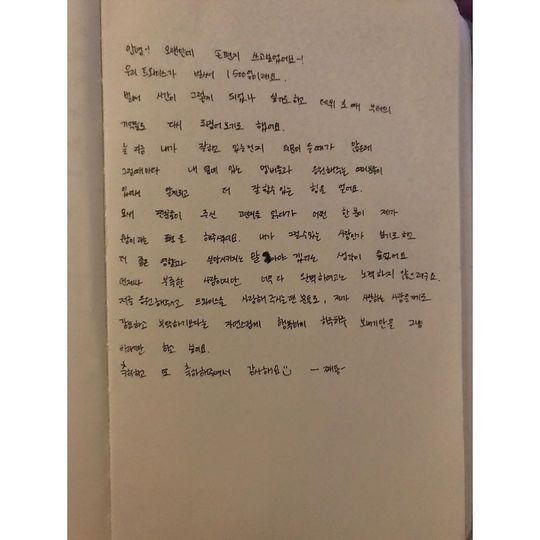 안녕~! 오랜만에 손편지 쓰고싶었어요~!
우리 트와이스가 벌써 1500일이래요.
벌써 시간이 그렇게 되었나 싶기도 하고 데뷔 노래 부터의
기억들로 다시 되짚어보기로 했어요.
늘 지금 내가 잘하고 있는건지 의문이 순간에
그럴때마다 내 옆에 있는 멤버들과 응원해주는 여러분이
있어서 알게되고 더 잘 할수 있는 힘을 얻어요.
요새 팬분들이 주신 편지를 읽다가 어떤 한 분이 제가
말을 해주셨어요. 내가 그럴수있는 사람인가 싶기도 하고
더 좋은 영향과 말 생각이 들었어요
언제나 부족한 사람이지만 너무 다 완벽하려고는 노력하지 않으려구요.
지금 응원해주시고 트와이스를 사랑해 주시는 분들도, 제가 사랑하는 사람들에게도
강요하고 부탁하기보다는 자연스럽게 행복하게 하루하루 보내기만을 그냥
바래본 하고 있어요.
축하하고 또 축하해주셔서 감사해요